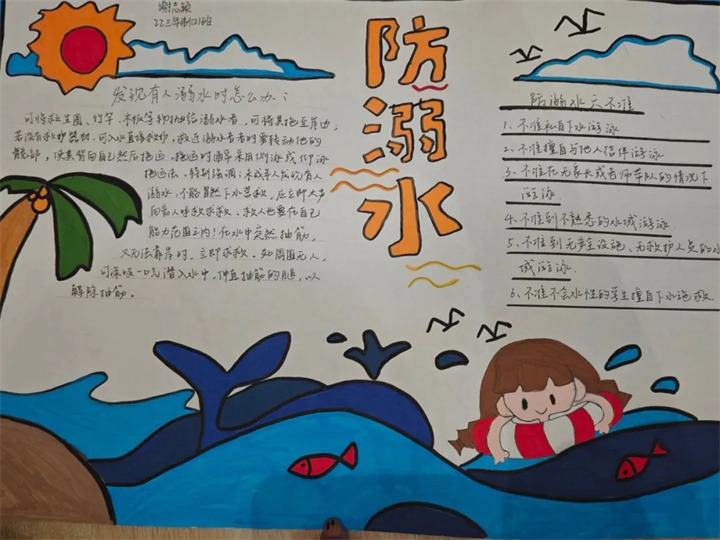 谢志颖
发现有人溺水时怎么办？
可将救生圈、竹竿、木板等物抛给溺水者，可将其拖至岸边，
若没有救护器材，可入水直接救护，救近溺水者者时要转动他的
髋部，使其背向自己然后拖运，拖运时通常采用侧泳或仰泳
拖运法，特别强调：未成年人发现有人
溺水，不能冒然下水营救，应立即大声
向高人呼救求救，救人也要在自己
能力范围之内！在水中突然抽筋，
又无法靠岸时，立即求救，如周围无人，
可深吸一口气潜入水中，伸直抽筋的腿，以
解除抽筋。
防
溺
水
防溺水六不准
1、不准私自下水游泳
2、不准擅自与他人结伴游泳
3、不准在无家长或老师带队的情况下
游泳
4、不准到不熟悉的水域游泳
5、不准到无安全设施、无救护人员的水
域游泳
6、不准不会水性的学生擅自下水施救